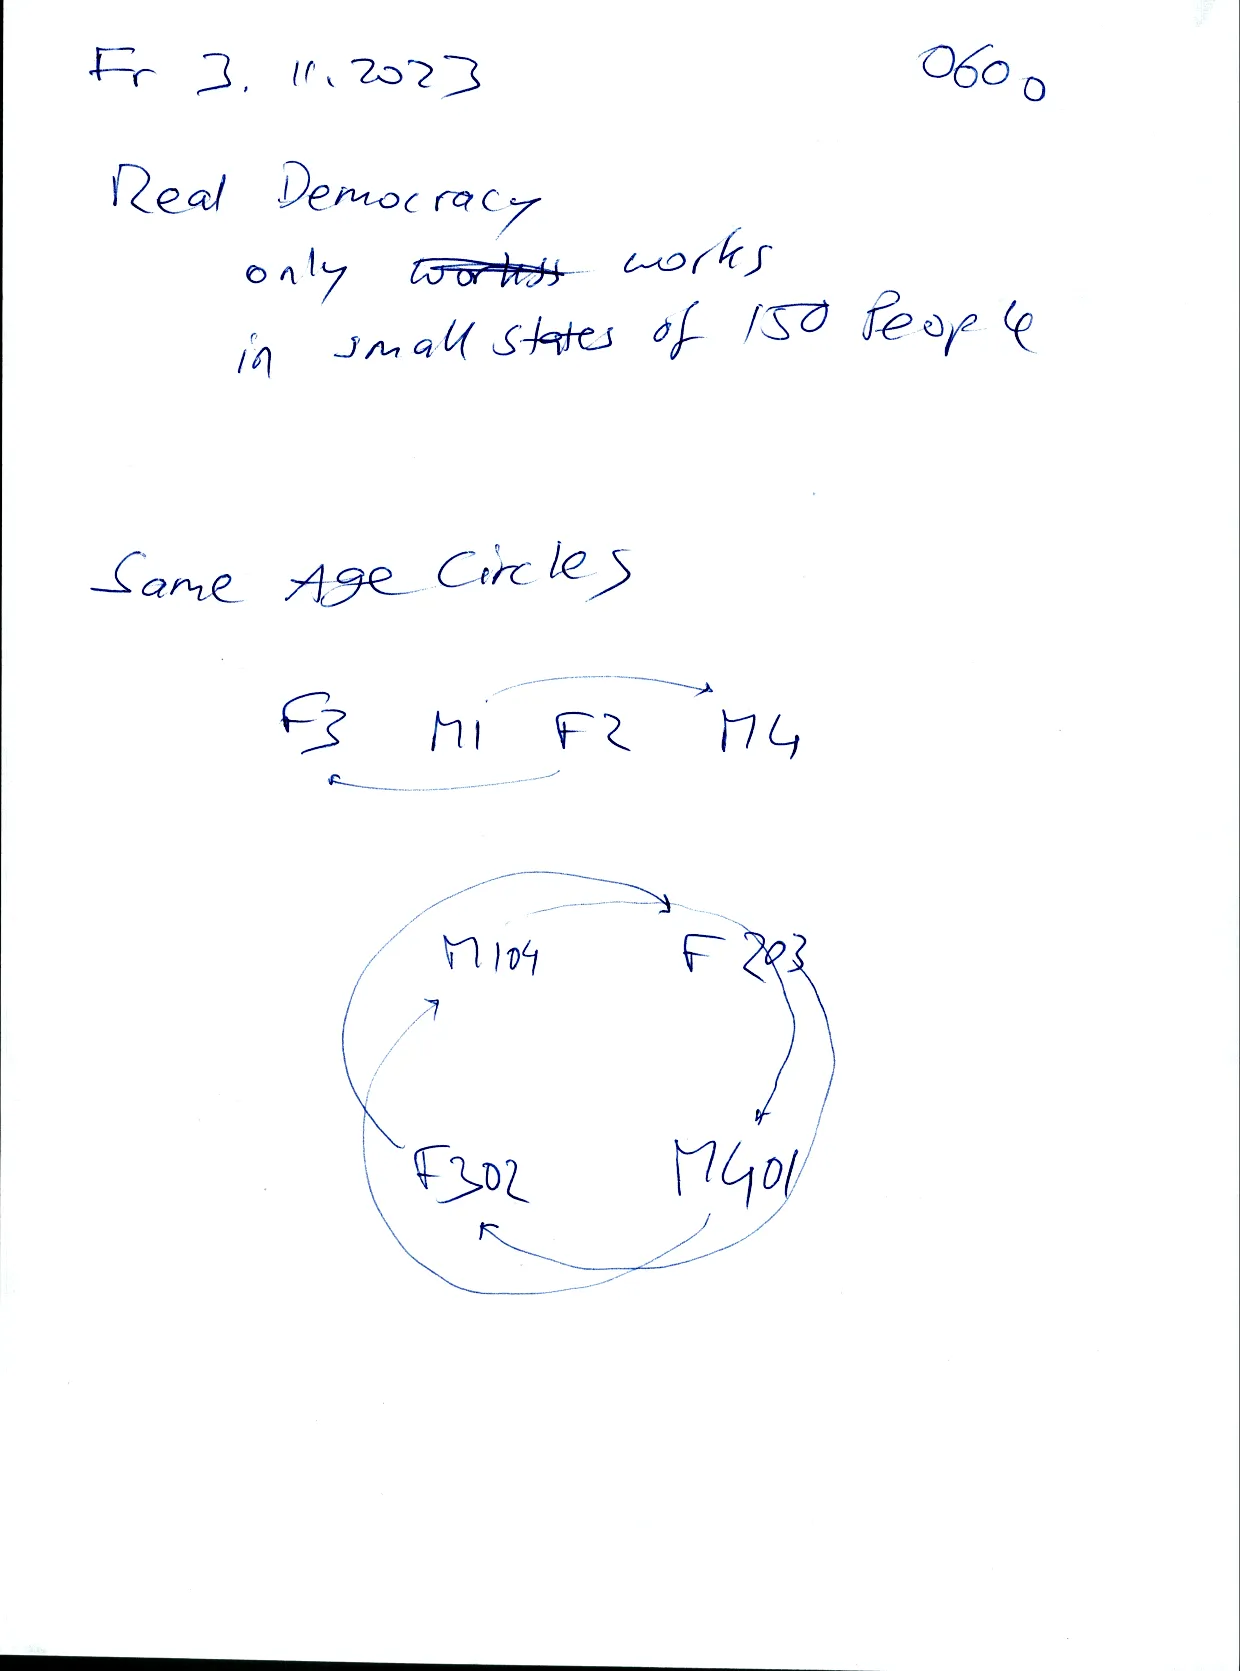 Fr 3. 11. 2023 0600
Real Democracy
only works
in small states of 150 People
Same Age Circles
F3 M1 F2 M4
M104 F203
F302 M401